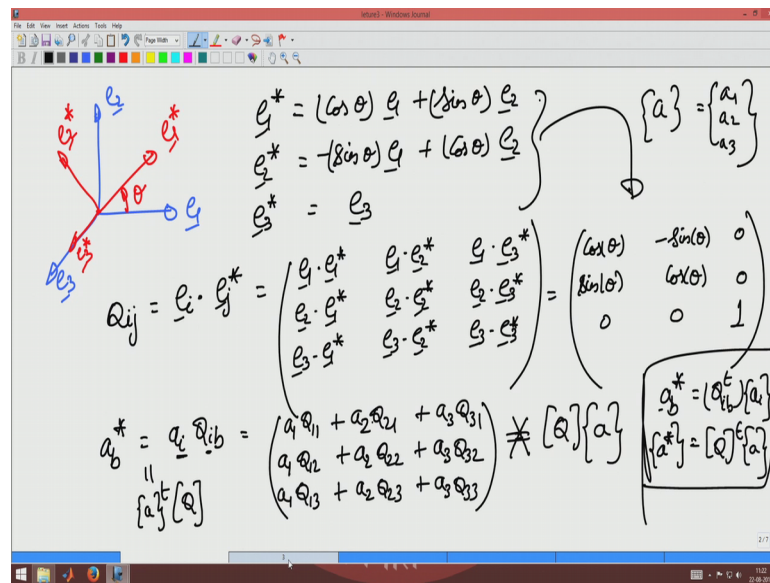 leture3 - Windows Journal
File Edit View Insert Actions Tools Help
Page Width
e₂
e₂*
e₁*
θ
e₁
e₃*
e₃
e₁* = (cosθ) e₁ + (sinθ) e₂
e₂* = -(sinθ) e₁ + (cosθ) e₂
e₃* = e₃
{a} = {a₁ a₂ a₃}
Qij = ei · ej* = (e₁·e₁* e₁·e₂* e₁·e₃*
e₂·e₁* e₂·e₂* e₂·e₃*
e₃·e₁* e₃·e₂* e₃·e₃*)
= (cos(θ) -sin(θ) 0
sin(θ) cos(θ) 0
0 0 1)
ab* = ai Qib = (a₁Q₁₁ + a₂Q₂₁ + a₃Q₃₁
a₁Q₁₂ + a₂Q₂₂ + a₃Q₃₂
a₁Q₁₃ + a₂Q₂₃ + a₃Q₃₃)
≠ [Q]{a}
=
{a}ᵗ[Q]
ab* = (Qibᵗ){ai
{a*} = [Q]ᵗ{a}
2/7
3
11:22